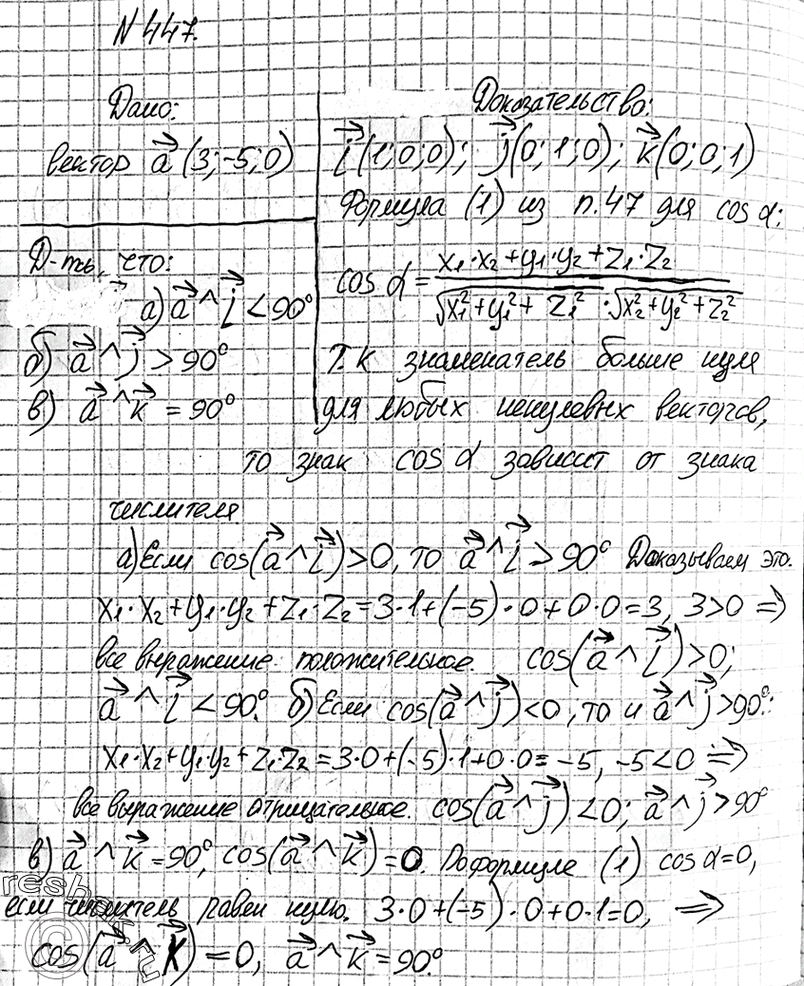 N 447.
Дано:
вектор a⃗ (3;-5;0)
Д-ть, что:
а) a⃗ ^ i⃗ < 90°
б) a⃗ ^ j⃗ > 90°
в) a⃗ ^ k⃗ = 90°
Доказательство:
i⃗ (1;0;0); j⃗ (0;1;0); k⃗ (0;0;1)
Формула (1) из п.47 для cos α:
cos α = (x₁·x₂+y₁·y₂+z₁·z₂) / (√(x₁²+y₁²+z₁²) · √(x₂²+y₂²+z₂²))
Т.к знаменатель больше нуля
для любых ненулевых векторов,
то знак cos α зависит от знака
числителя
а) Если cos(a⃗ ^ i⃗) > 0, то a⃗ ^ i⃗ > 90° Доказываем это.
x₁·x₂+y₁·y₂+z₁·z₂=3·1+(-5)·0+0·0=3, 3>0 ⇒
все выражение положительное. cos(a⃗ ^ i⃗) > 0;
a⃗ ^ i⃗ < 90°. б) Если cos(a⃗ ^ j⃗) < 0, то и a⃗ ^ j⃗ > 90°:
x₁·x₂+y₁·y₂+z₁·z₂=3·0+(-5)·1+0·0=-5, -5<0 ⇒
все выражение отрицательное. cos(a⃗ ^ j⃗) < 0; a⃗ ^ j⃗ > 90°
в) a⃗ ^ k⃗ = 90°, cos(a⃗ ^ k⃗) = 0. По формуле (1) cos α=0,
если числитель равен нулю. 3·0+(-5)·0+0·1=0, ⇒
cos(a⃗ ^ k⃗) = 0, a⃗ ^ k⃗ = 90°.